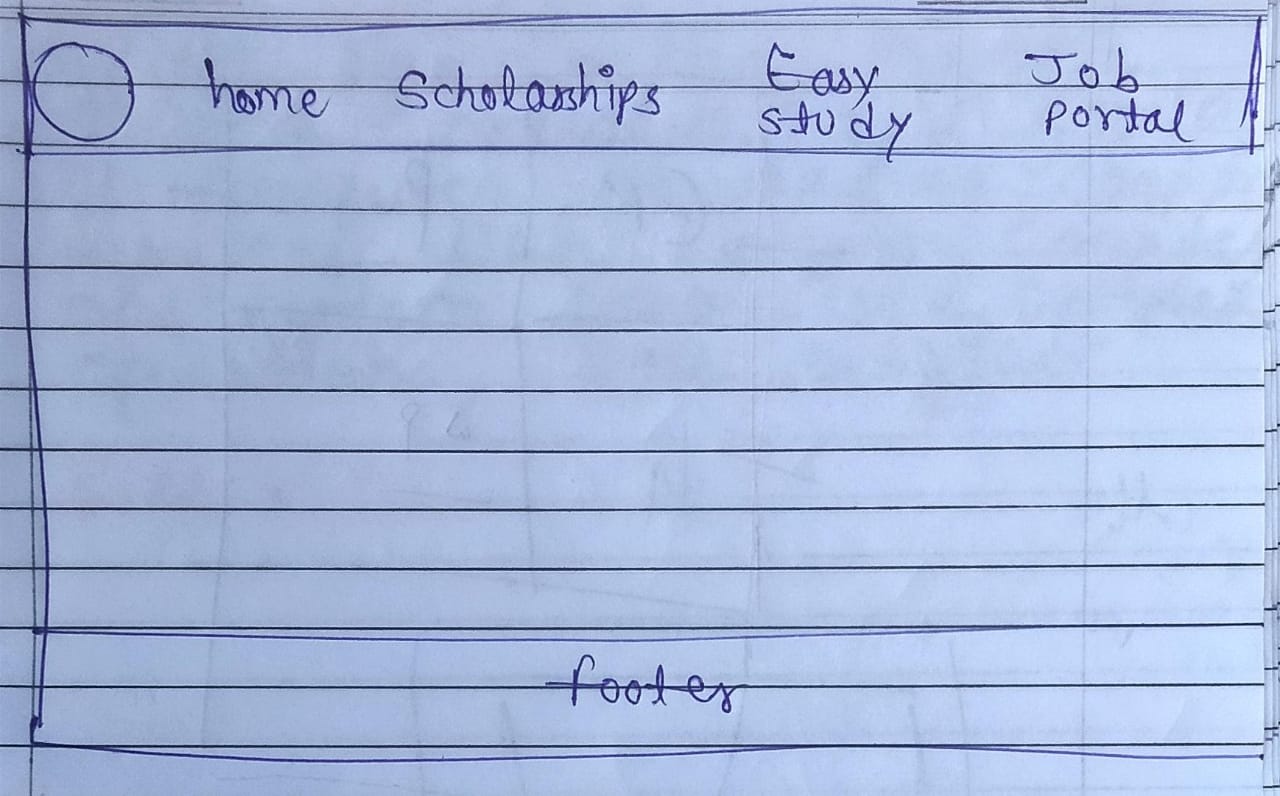 home Scholarships Easy study Job portal
footer